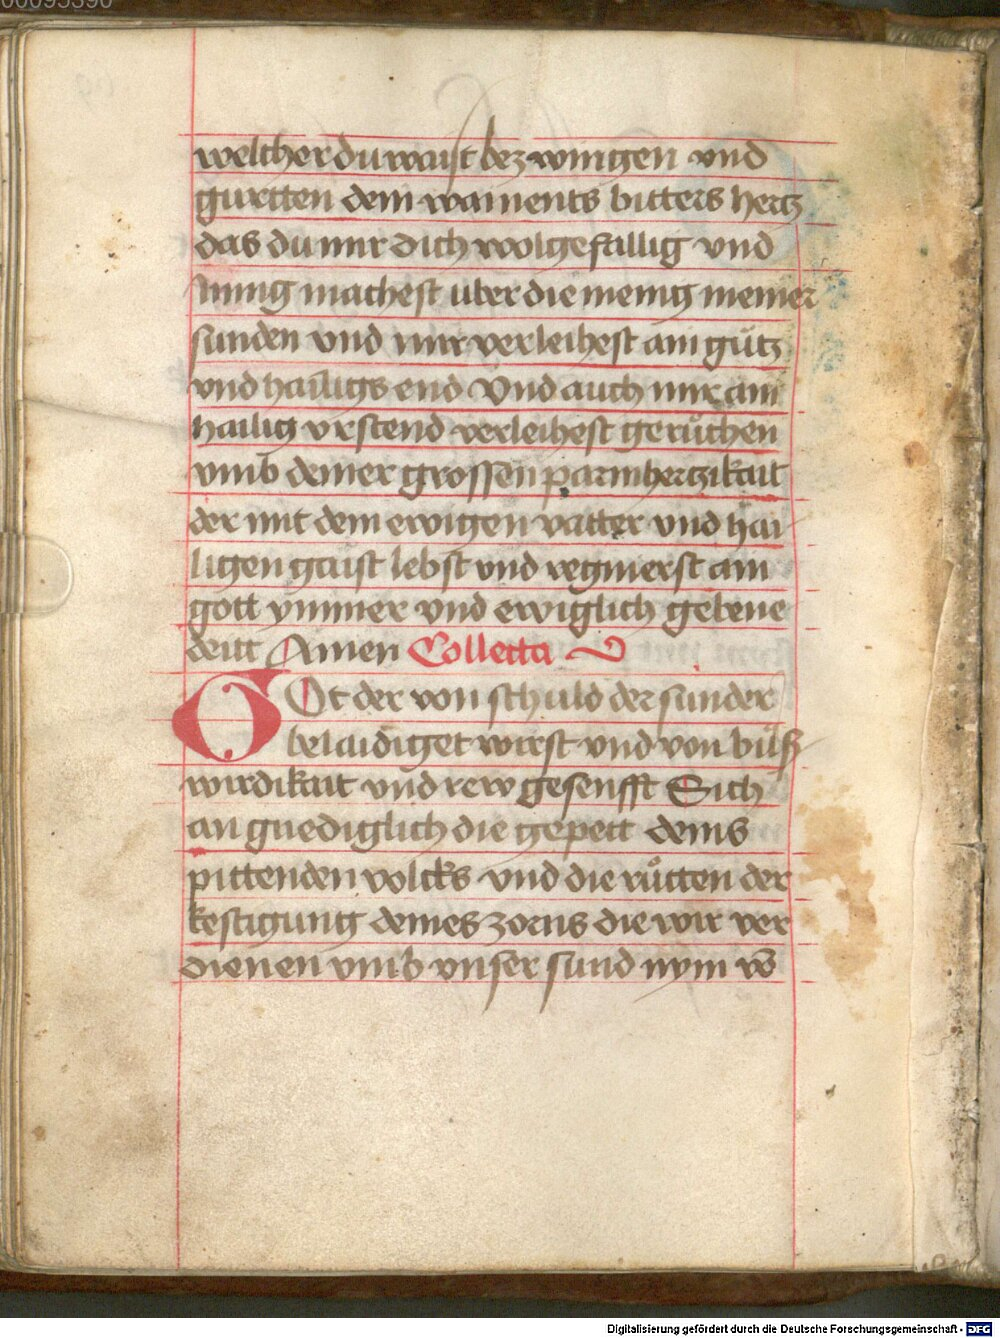 00095390
welcher du waist bezwingen und
guetten dein wainents bitters hertz
das du mir dich wolgefallig und
ning machest uber die menig meiner
sunden und mir verleihest ain gůtz
und hailigs end Und auch mir ain
hailig vrstend verleihest gerůchen
vmb deiner grossen parmhertzikait
der mit dem ewigen vatter und hai
ligen gaist lebst und regnierst ain
gott ymmer und ewiglich gebene
deitt Amen Colletta
GOt der von schuld der sunder
belaidiget wirst und von bůsz
wirdikait und rew gesenfft Sich
an gnediglich die gepett deins
pittenden volcks und die růtten der
kestigung deines zorns die wir ver
dienen vmb vnser sund nym vō
Digitalisierung gefördert durch die Deutsche Forschungsgemeinschaft - DFG